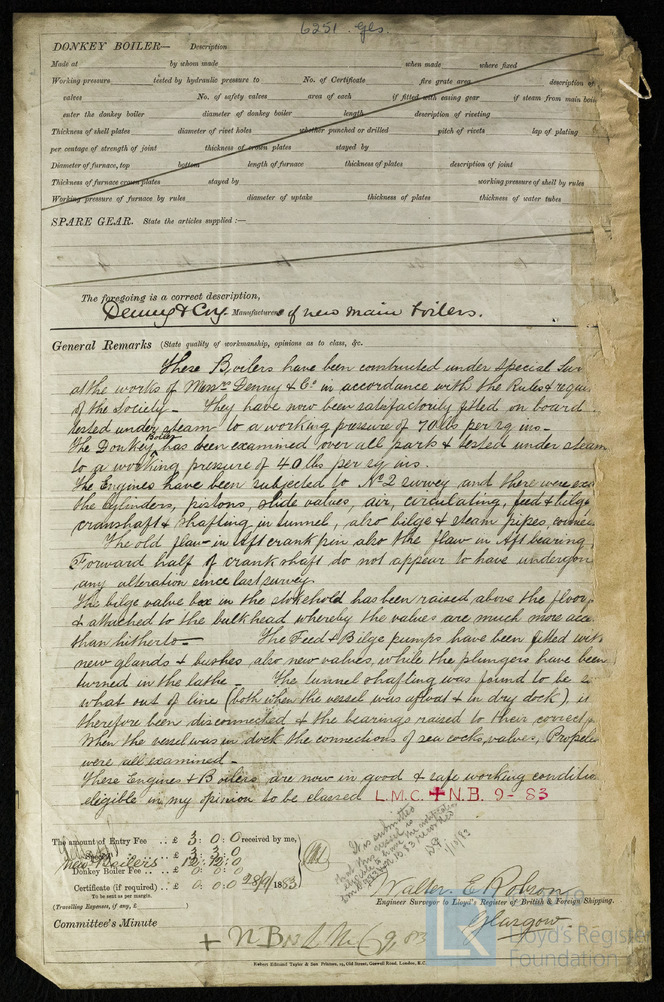 6251 Gls.
DONKEY BOILER— Description
Made at by whom made when made where fixed
Working pressure tested by hydraulic pressure to No. of Certificate fire grate area description of
valves No. of safety valves area of each if fitted with easing gear if steam from main boi
enter the donkey boiler diameter of donkey boiler length description of riveting
Thickness of shell plates diameter of rivet holes whether punched or drilled pitch of rivets lap of plating
per centage of strength of joint thickness of crown plates stayed by
Diameter of furnace, top bottom length of furnace thickness of plates description of joint
Thickness of furnace crown plates stayed by working pressure of shell by rules
Working pressure of furnace by rules diameter of uptake thickness of plates thickness of water tubes
SPARE GEAR. State the articles supplied :—
The foregoing is a correct description,
Denny & Coy. Manufacturers of new main boilers.
General Remarks (State quality of workmanship, opinions as to class, &c.
These Boilers have been constructed under Special Sur
at the works of Messrs Denny & Co in accordance with the Rules & requi
of the Society - They have now been satisfactorily fitted on board
tested under steam to a working pressure of 70 lbs per sq ins -
The Donkey Boiler has been examined over all parts & tested under steam
to a working pressure of 40 lbs per sq ins.
The Engines have been subjected to No 2 survey and there were exa
the cylinders, pistons, slide valves, air, circulating, feed & bilge
crankshaft & shafting in tunnel, also bilge & steam pipes, connec
The old flaw in aft crank pin also the flaw in Aft bearing
Forward half of crank shaft do not appear to have undergon
any alteration since last survey
The bilge valve box in the stokehold has been raised above the floor p
& attached to the bulkhead whereby the valves are much more acc
than hitherto - The Feed & Bilge pumps have been fitted with
new glands & bushes also new valves, while the plungers have been
turned in the lathe - The tunnel shafting was found to be so
what out of line (both when the vessel was afloat & in dry dock), it
therefore been disconnected & the bearings raised to their correct p
When the vessel was in dock the connections of sea cocks, valves, Propele
were all examined -
These Engines & Boilers are now in good & safe working conditio
eligible in my opinion to be classed L.M.C. + N.B. 9-83
The amount of Entry Fee .. £ 3: 0: 0 received by me,
Special .. £ 3: 3: 0
New Boilers 12: 12: 0
Donkey Boiler Fee .. £ 0: 0: 0
Certificate (if required) .. £ 0: 0: 0 28/9/1883
To be sent as per margin.
(Travelling Expenses, if any, £ )
It is submitted
that this vessel is
eligible to have the notification
1/10/83
Walter. E. Robson
Engineer Surveyor to Lloyd's Register of British & Foreign Shipping.
Glasgow.
Committee's Minute
+ N.B. & L.M.C. 9,83
Robert Edmund Taylor & Son Printers, 19, Old Street, Goswell Road, London, E.C.
Lloyd's Register
Foundation